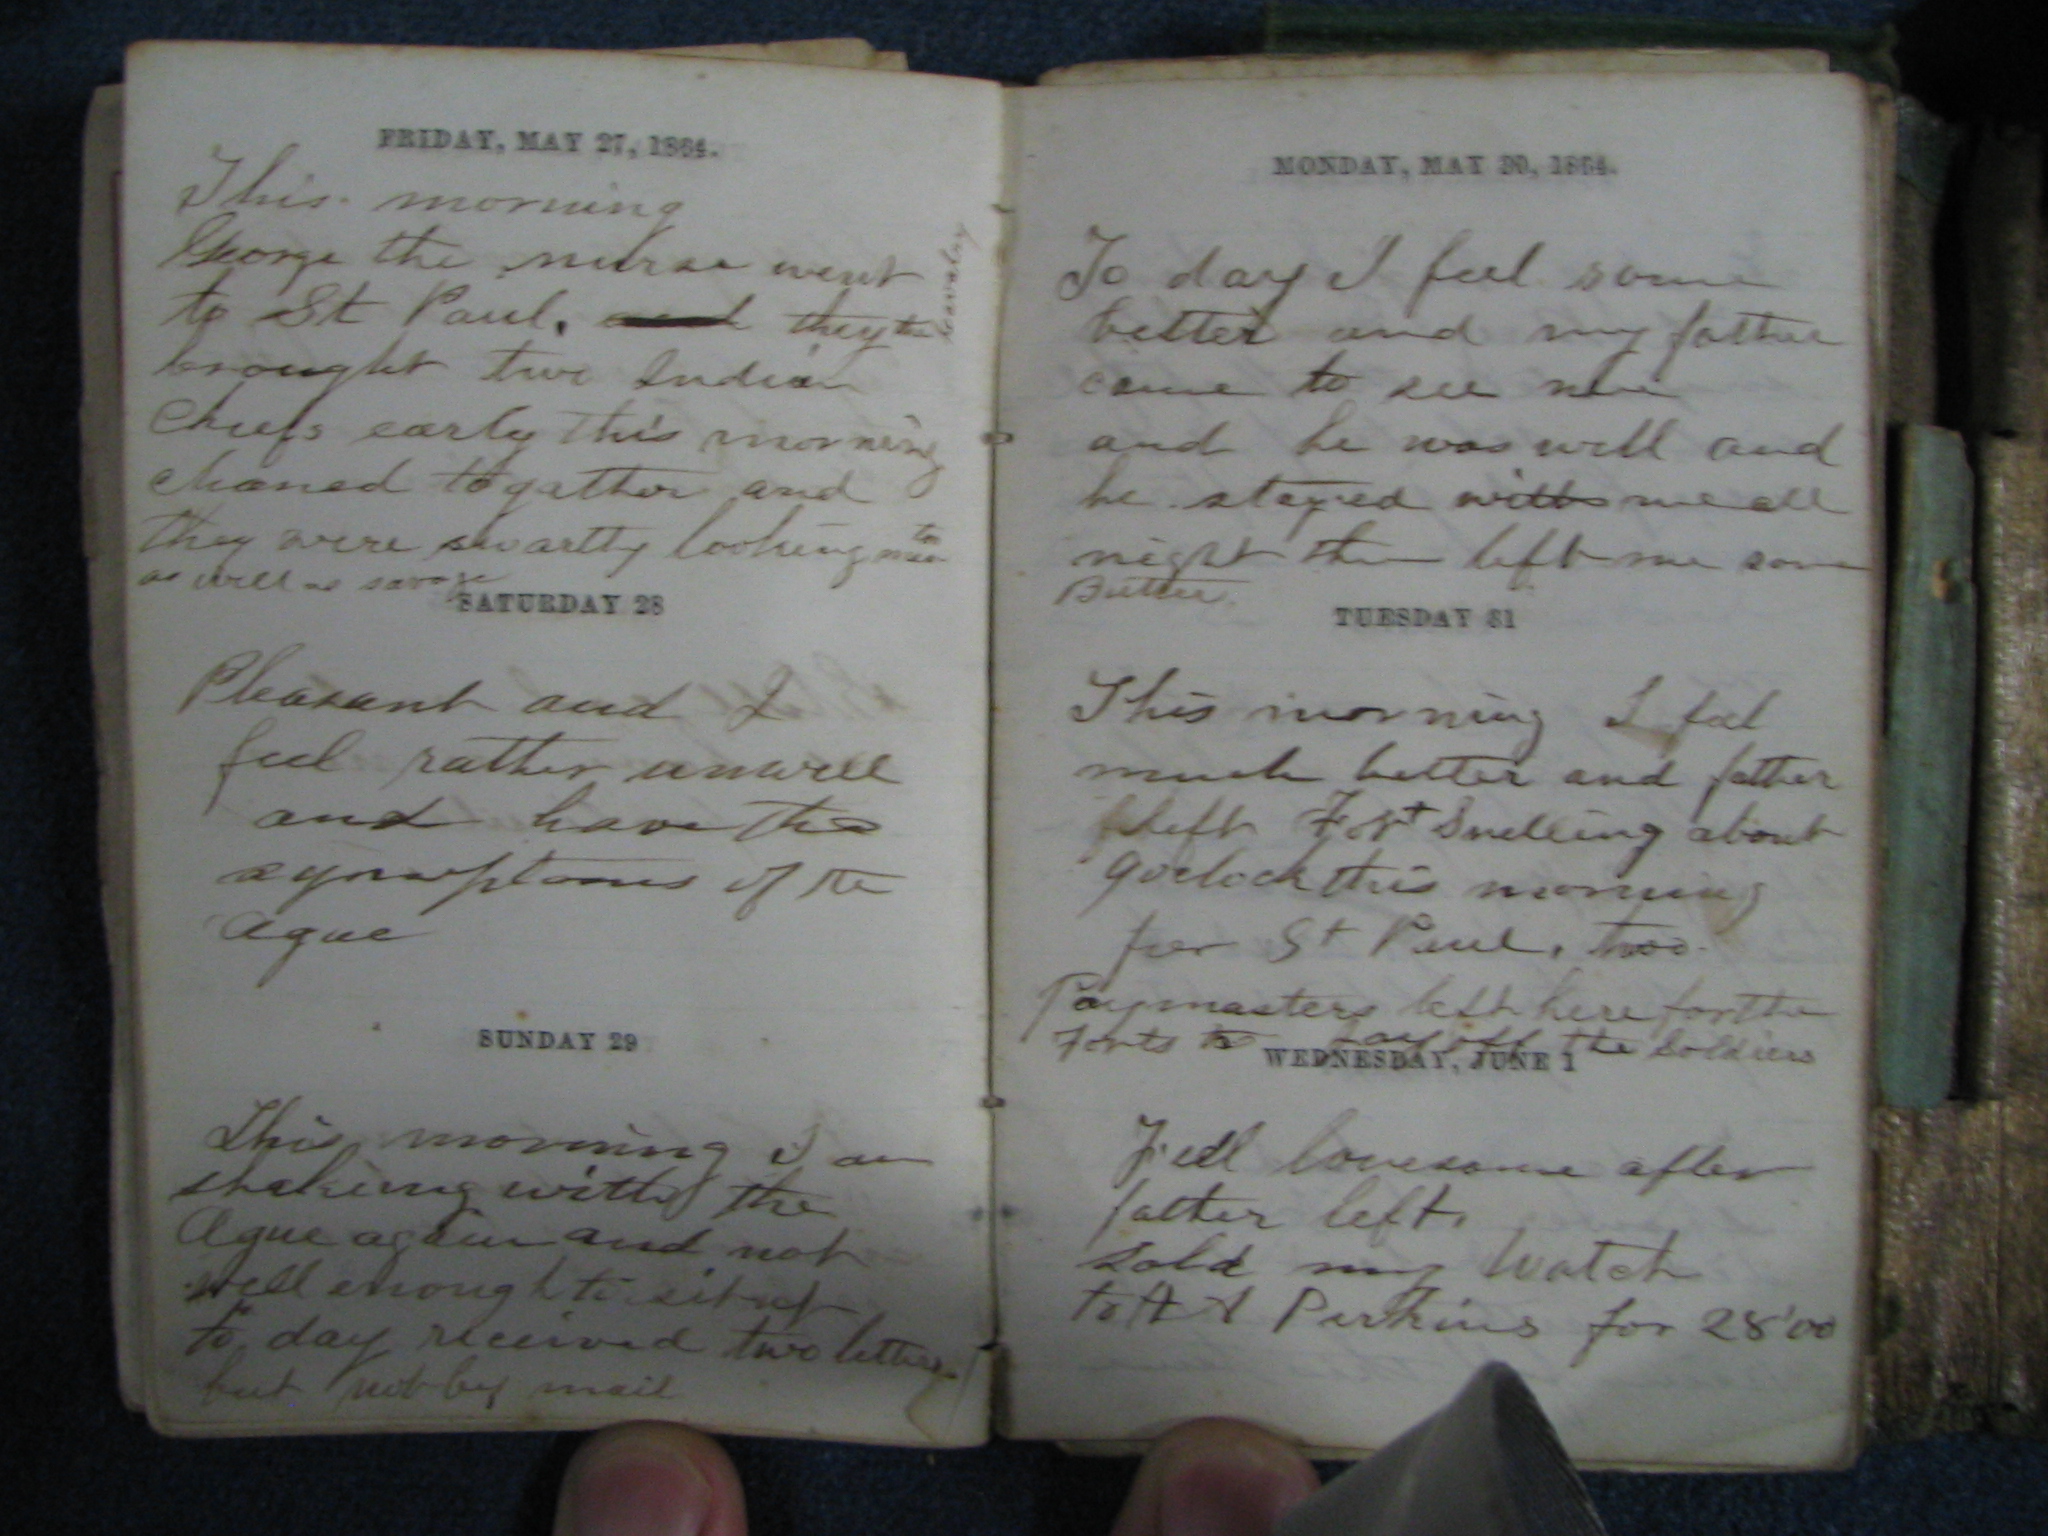 FRIDAY, MAY 27, 1864.
This morning
George the nurse went
to St Paul. and they the
cavalry
brought two Indian
Chiefs early this morning
chaned togather and
they were swarthy looking men
as well as savage
SATURDAY 28
Pleasant and I
feel rather unwell
and have the
symptoms of the
Ague
SUNDAY 29
This morning I am
shaking with the
Ague again and not
well enough to sit up
to day received two letters
but not by mail
MONDAY, MAY 30, 1864.
To day I feel some
better and my father
came to see me
and he was well and
he stayed with me all
night then left me some
Butter.
TUESDAY 31
This morning I feel
much better and father
left Fort Snelling about
9 oclock this morning
for St Paul. two
Paymasters left here for the
Forts to pay off the Soldiers
WEDNESDAY, JUNE 1
Feell lonesome after
father left.
Sold my Watch
to Perkins for 28.00